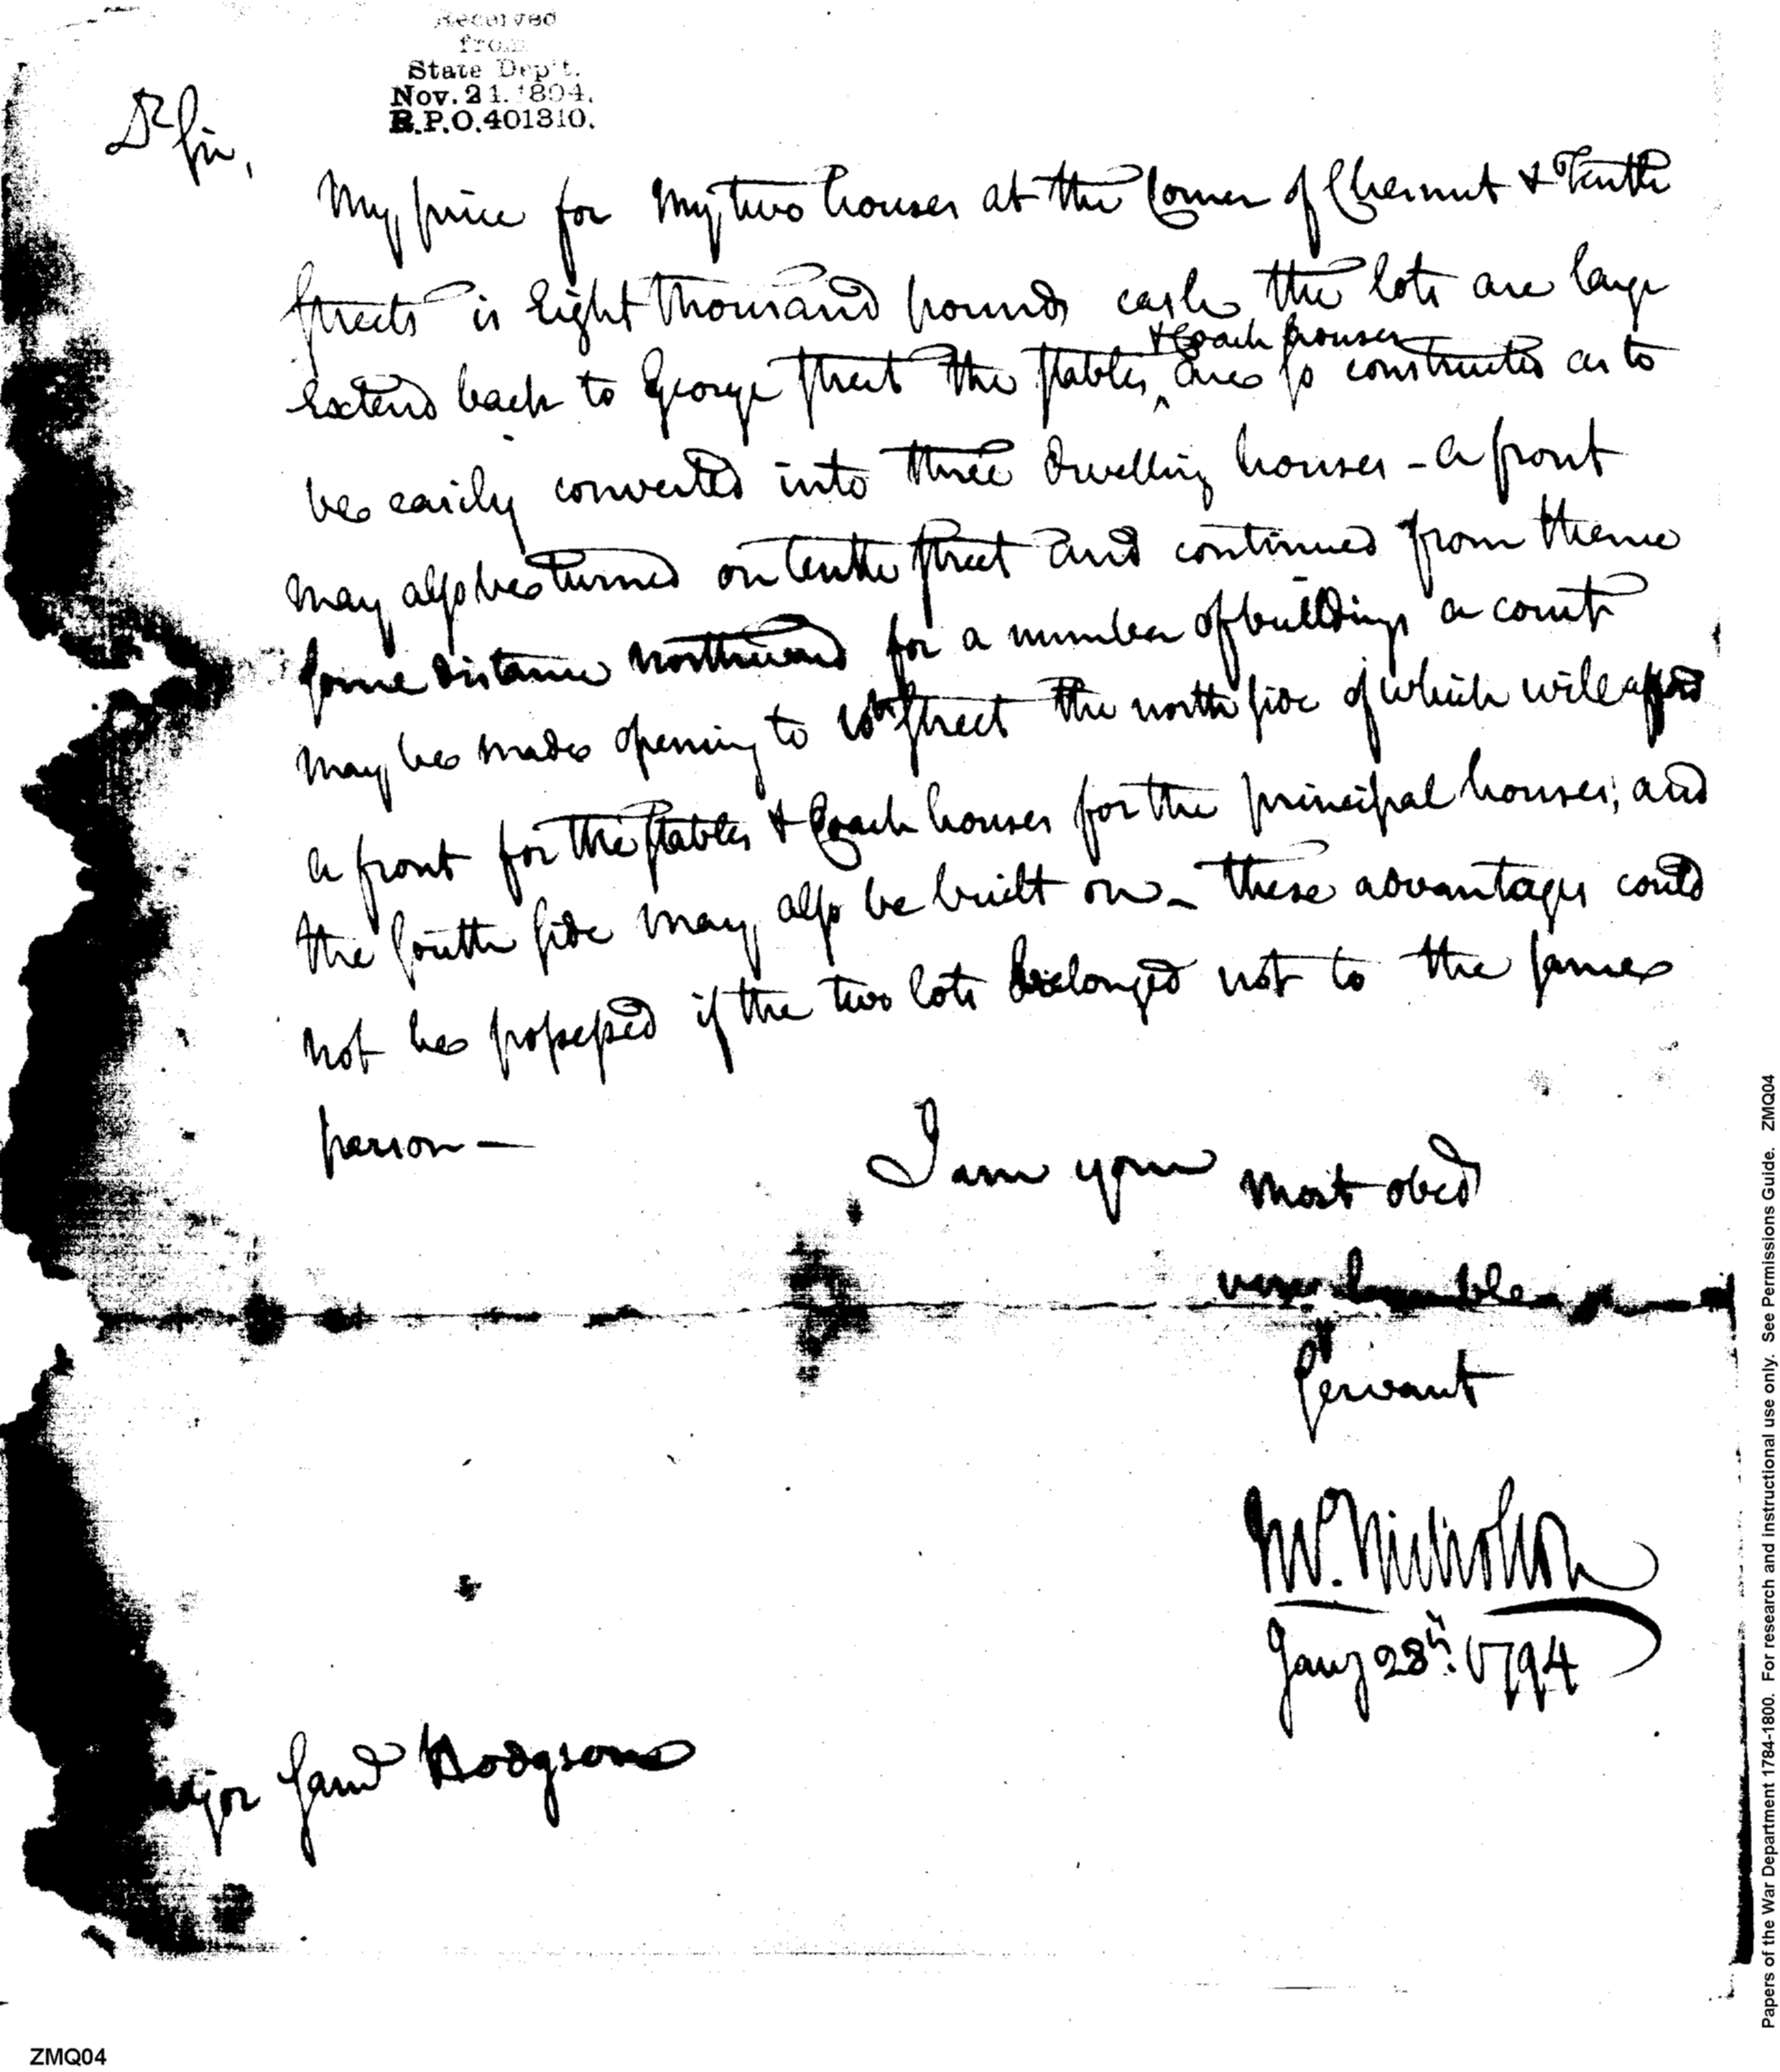 Received
from
State Dep't.
Nov. 21. 1894.
R.P.O. 401310.
Dr Sir,
My price for my two houses at the Corner of Chesnut & Tenth
Streets is Eight thousand pounds cash, the lots are large
& Coach houses
Extend back to George Street the Stables ^ are so constructed as to
be easily converted into three dwelling houses - a front
may also be turned on tenth Street and continued from thence
some distance northward for a number of buildings a court
may be made opening to 10th Street the north side of which will afford
a front for the Stables & Coach houses for the principal houses; and
the South side may also be built on - these advantages could
not be possessed if the two lots belonged not to the same
person —
I am your most obed
very humble
Servant
W. Nicholson
Jany 28th. 1794
Major Saml Hodgson
ZMQ04
Papers of the War Department 1784-1800. For research and instructional use only. See Permissions Guide. ZMQ04